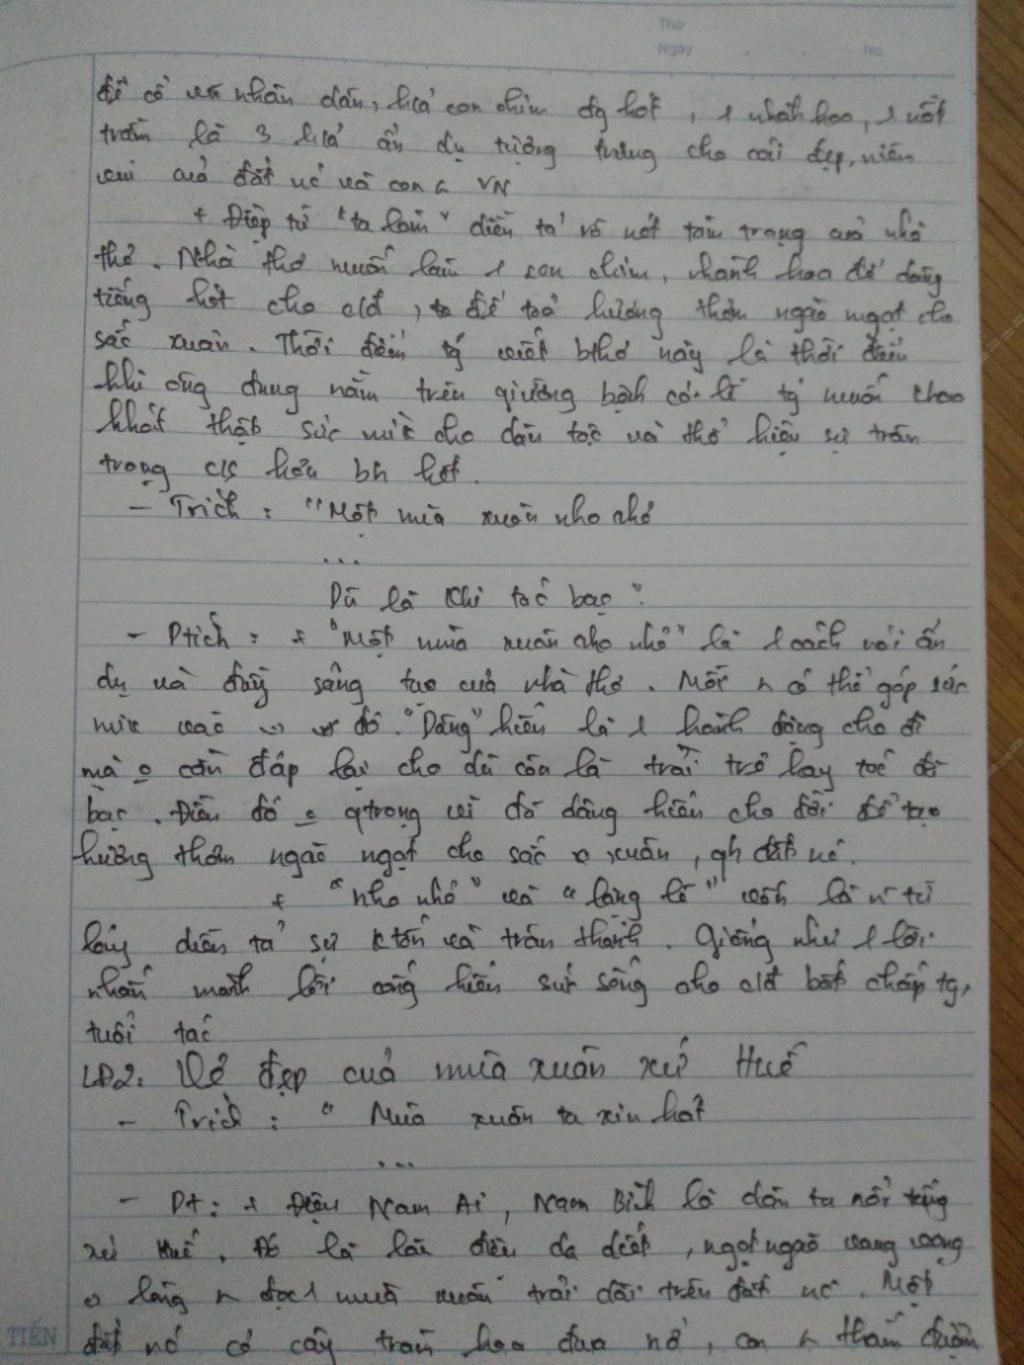 Thứ
Ngày No.
để cổ nhân dân, h/ả con chim đg hót, 1 nhành hoa, 1 nốt
trầm là 3 h/ả ẩn dụ tượng trưng cho cái đẹp, niềm
vui của đất nc và con VN
+ Điệp từ "ta làm" diễn tả rõ nét tâm trạng của nhà
thơ. Nhà thơ muốn làm 1 con chim, nhành hoa để dâng
tiếng hót cho cđ, để toả hương thơm ngào ngạt cho
sắc xuân. Thời điểm tg viết bthơ này là thời điểm
khi ông đang nằm trên giường bệnh có lẽ tg muốn
khát thật sức cho dân tộc và thể hiện sự trân
trọng c/s hơn bh hết.
- Trích: "Một mùa xuân nho nhỏ
...
Dù là khi tóc bạc".
- Ptích: + "Một mùa xuân nho nhỏ" là 1 cách nói ẩn
dụ và đầy sáng tạo của nhà thơ. Mỗi có thể góp sức
mk vào đó. "Dâng" hiến là 1 hành động cho đi
mà o cần đáp lại cho dù còn là trai trẻ hay tóc đã
bạc. Điều đó o qtrọng vì đã dâng hiến cho đời để tạo
hương thơm ngào ngạt cho sắc xuân, qh đất nc.
+ "nho nhỏ" và "lặng lẽ" vốn là từ
láy diễn tả sự ktốn và trân thành. Giống như 1 lời
nhấn mạnh lối cống hiến sức sống cho cđ bất chấp tg,
tuổi tác
LĐ2: Vẻ đẹp của mùa xuân xứ Huế
- Trích: " Mùa xuân ta xin hát
...
- Pt: + Điệu Nam Ai, Nam Bình là dân ta nổi tiếng
xứ Huế. Đó là làn điệu da diết, ngọt ngào vang vọng
lòng đọc 1 mùa xuân trải dài trên đất nc. Một
đất nc có cây trăm hoa đua nở, con thắm đượm
TIẾN